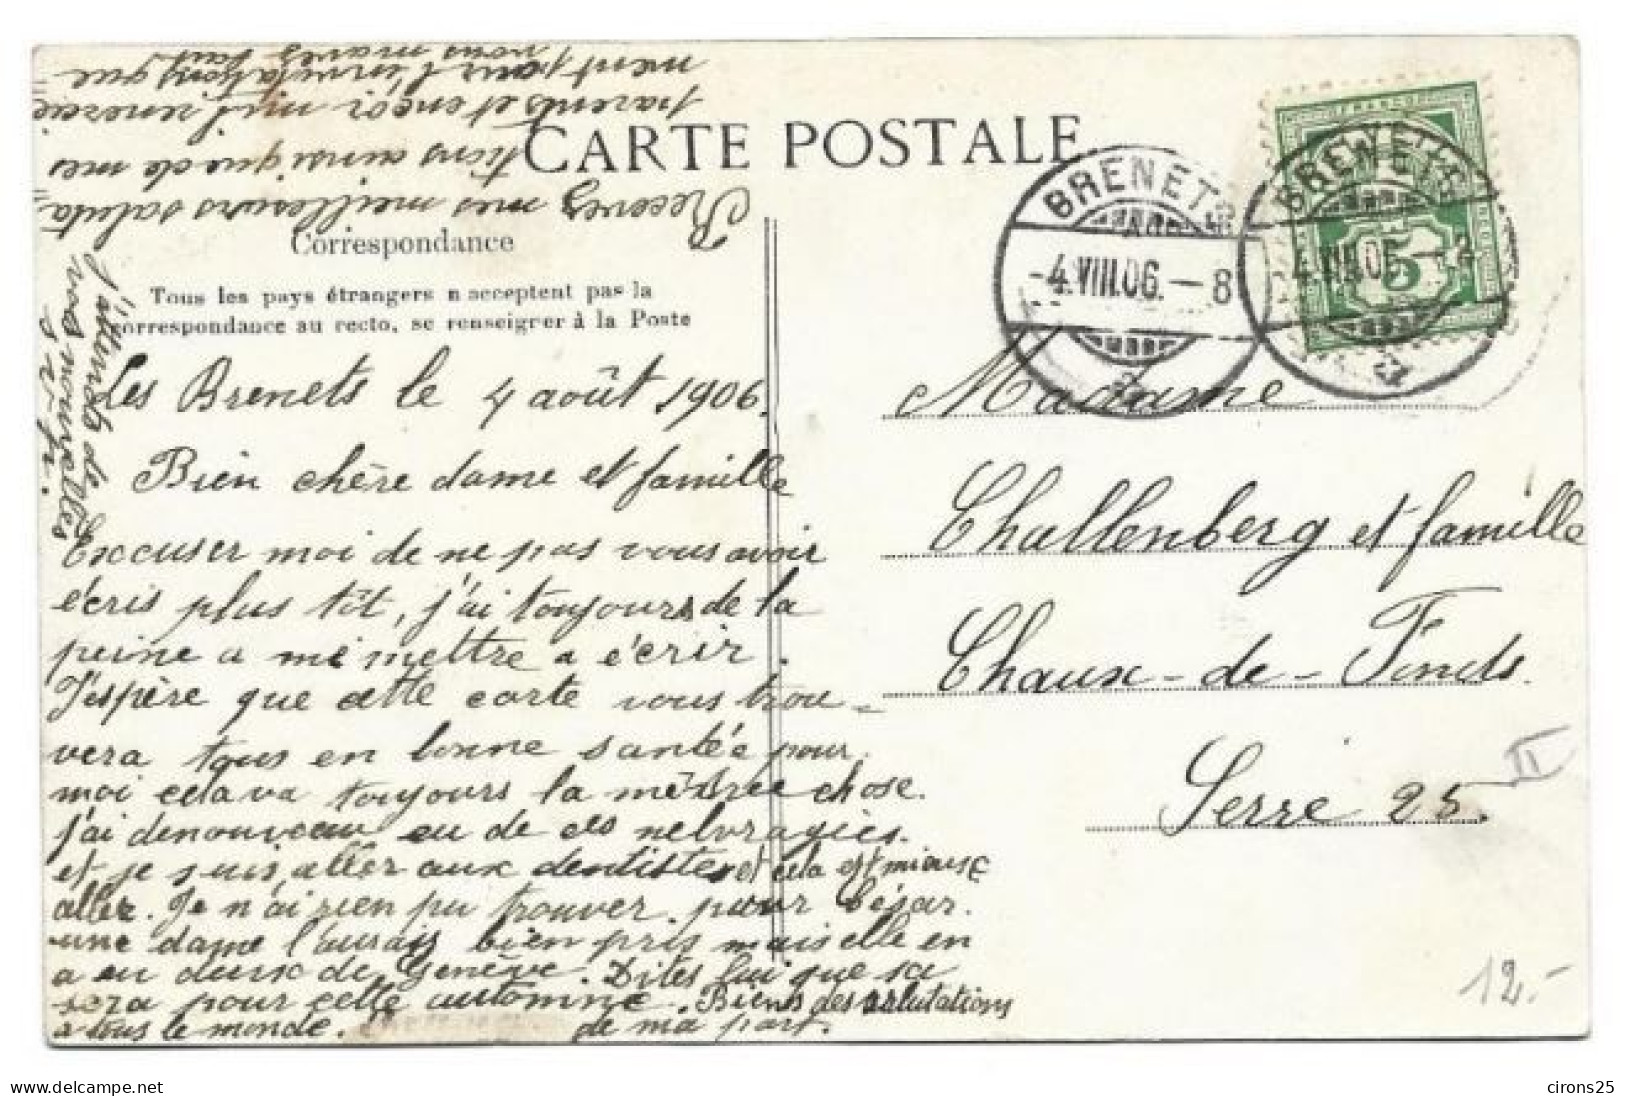 CARTE POSTALE
Correspondance
Tous les pays étrangers n acceptent pas la
correspondance au recto, se renseigner à la Poste
Les Brenets le 4 août 1906.
Bien chère dame et famille
Exccuser moi de ne pas vous avoir
écris plus tôt, j'ai toujours de la
peine a me mettre a écrir.
J'espère que cette carte vous trou-
vera tous en bonne santée pour
moi cela va toujours la même chose.
j'ai denouveau eu de ces nelvragies.
et je suis aller aux dentistes et cela est mieuse
aller. Je n'ai rien pu trouver pour
une dame l'aurais bien pris mais elle en
a eu deux de Genève. Dites lui que sa
sera pour cette automne. Biens des salutations
a tous le monde. de ma part.
Recevez mes meilleurs saluta-
tions ainsi que de mes
parents et encor mil remercie
ment pour l'invitations que
vous mavez fait
J'attends de
vos nouvelles
s. v. p.
BRENETS
-4.VIII.06.-8
BRENETS
FRANCO
5
Madame
Challenberg et famille
Chaux-de-Fonds.
Serre 25.
II
12.-
cirons25
www.delcampe.net